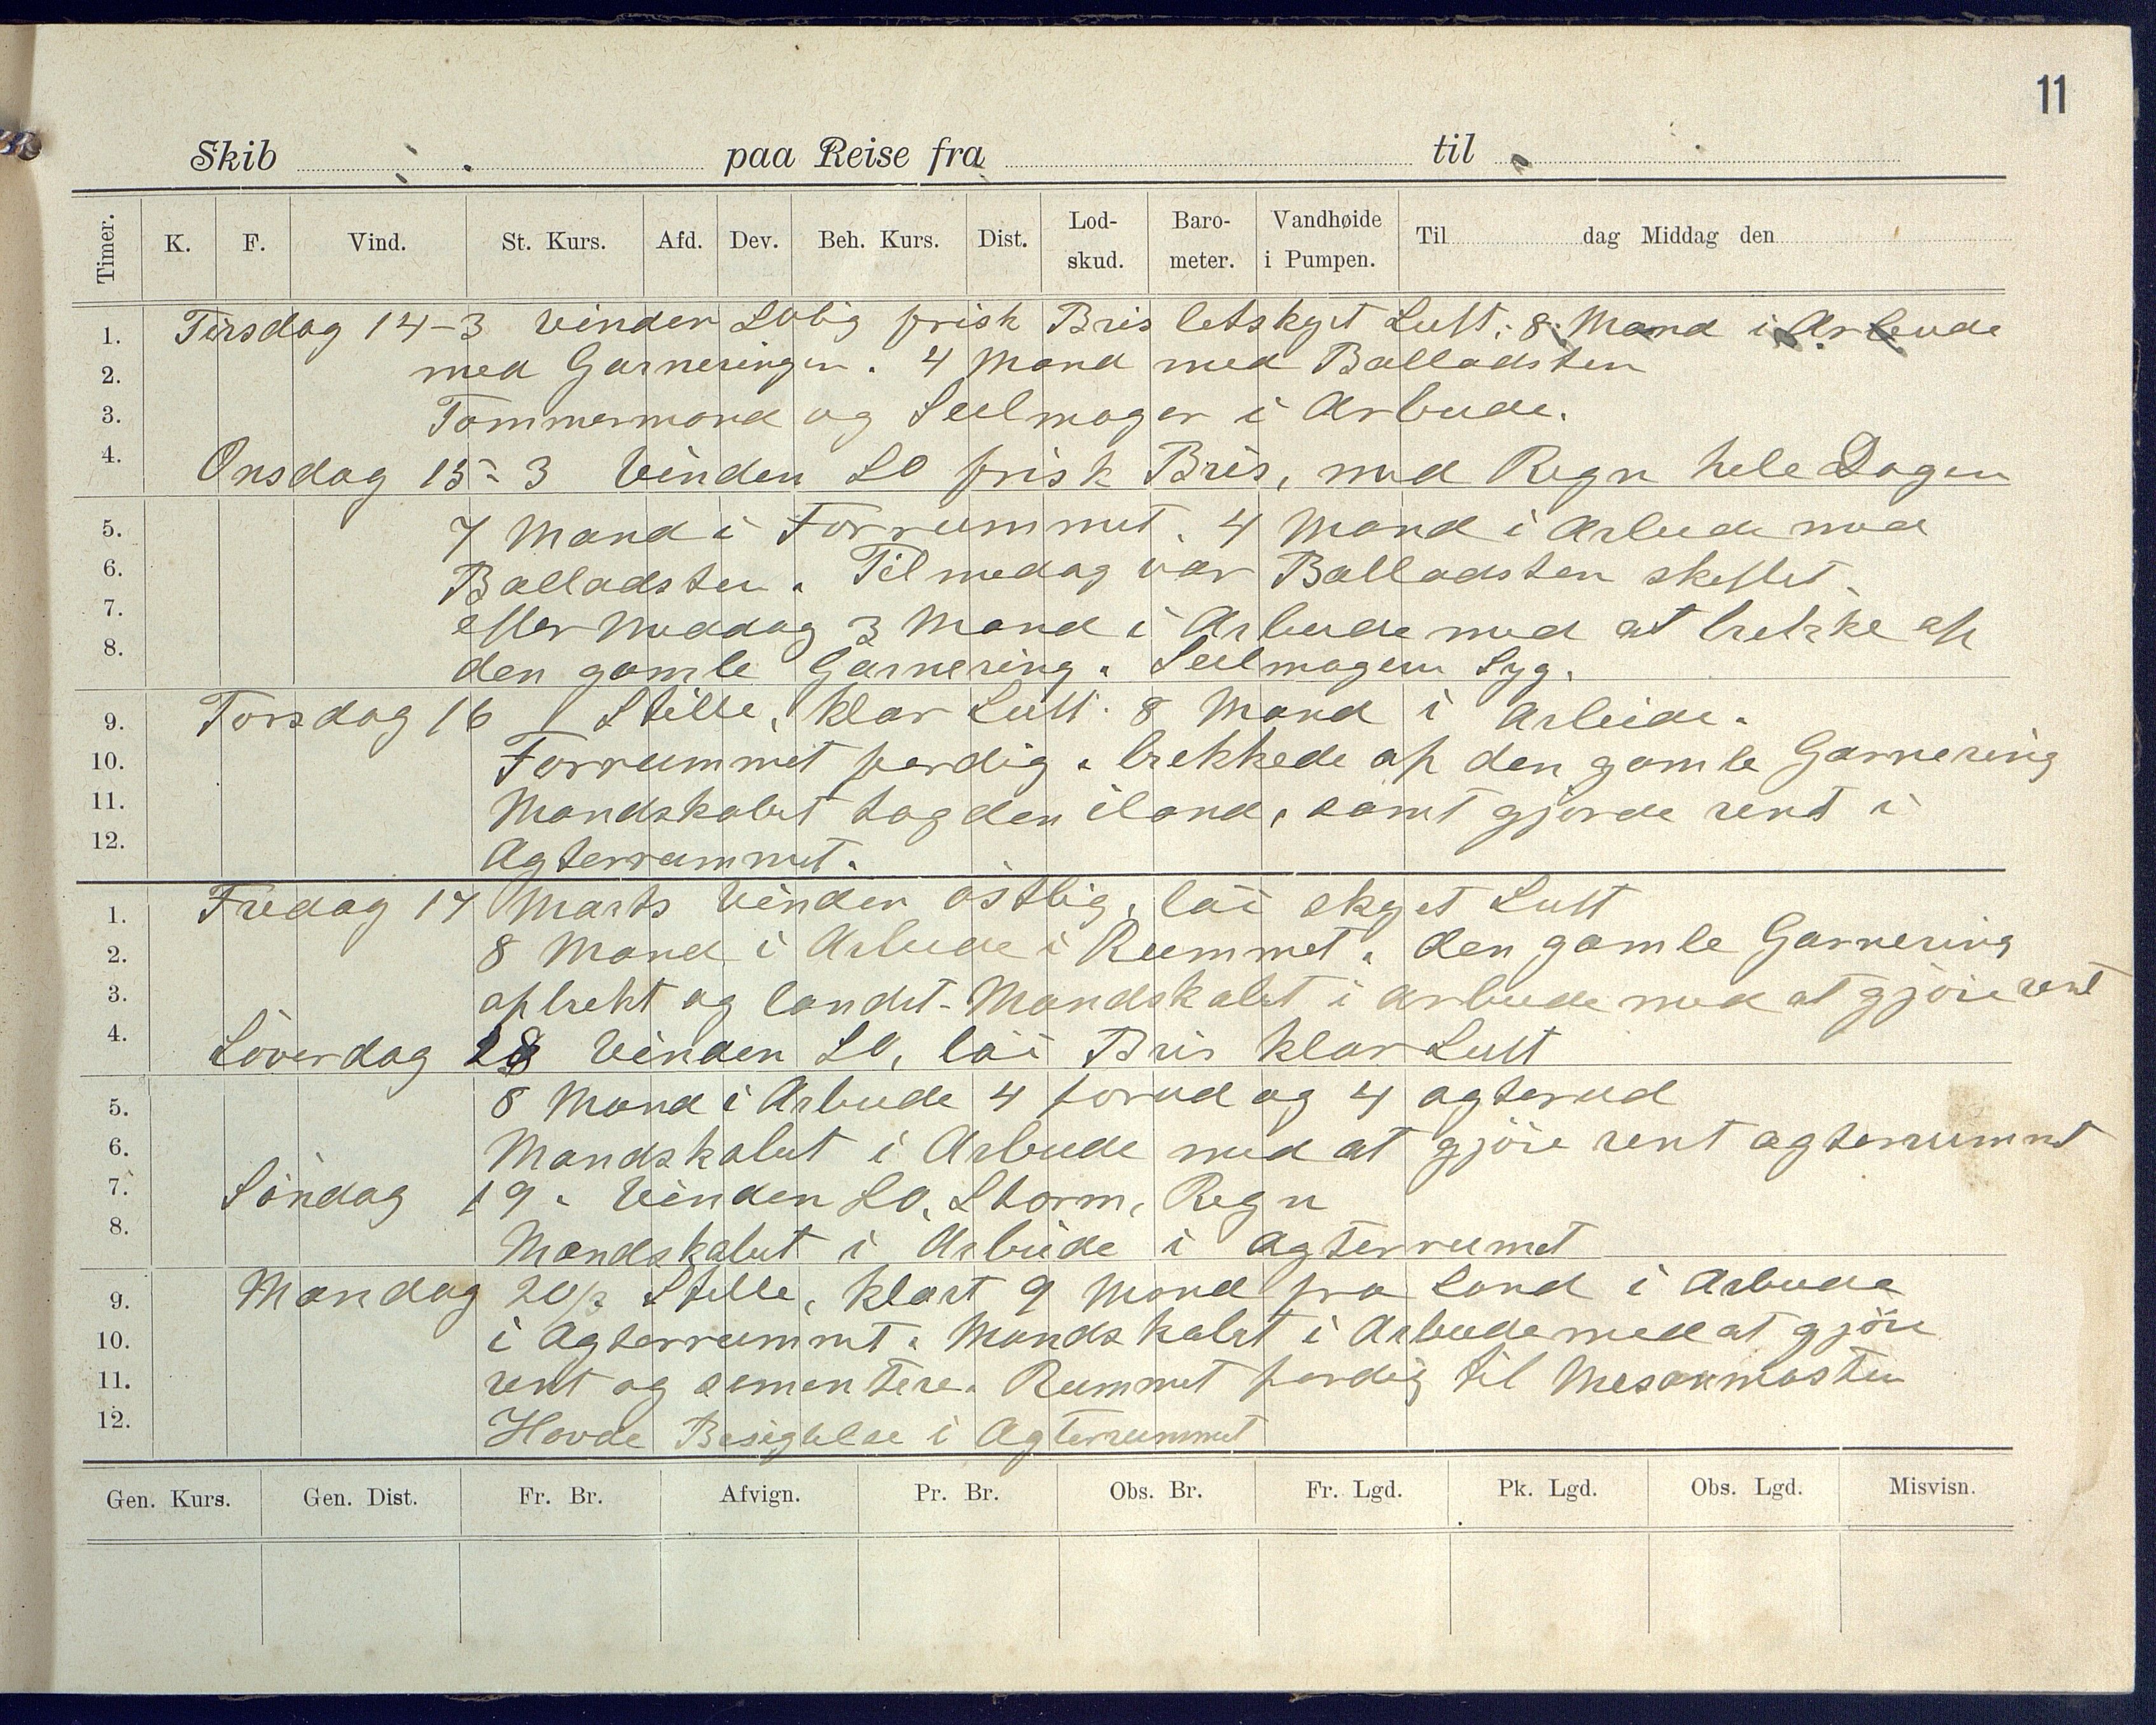 11
Skib paa Reise fra til
Timer. K. F. Vind. St. Kurs. Afd. Dev. Beh. Kurs. Dist. Lod-skud. Baro-meter. Vandhøide i Pumpen. Til dag Middag den
1. Tirsdag 14-3 Vinden SOlig frisk Bris letskyet Luft: 8 Mand i Arbeide
2. med Garneringen. 4 Mand med Balladsten
3. Tømmermand og Seilmager i Arbeide.
4. Onsdag 15-3 Vinden SO frisk Bris, med Regn hele Dagen
5. 7 Mand i Forrummet. 4 Mand i Arbeide med
6. Balladsten. Til medag var Balladsten skeftet.
7. efter Meddag 3 Mand i Arbeide med at brekke af
8. den gamle Garnering. Seilmageren Syg.
9. Torsdag 16 Stille, klar Luft. 8 Mand i Arbeide.
10. Forrummet ferdig. brekkede af den gamle Garnering
11. Mandskabet tog den iland, samt gjorde rent i
12. Agterrummet.
1. Fredag 17 Marts Vinden östlig, löi skyet Luft
2. 8 Mand i Arbeide i Rummet. den gamle Garnering
3. afbrekt og landet. Mandskabet i Arbeide med at gjöre rent
4. Löverdag 18 Vinden SO, löi Bris klar Luft
5. 8 Mand i Arbeide 4 forud og 4 agterud
6. Mandskabet i Arbeide med at gjöre rent agterrummet
7. Söndag 19. Vinden SO, Storm, Regn
8. Mandskabet i Arbeide i Agterrumet
9. Mandag 20/3 Stille, klart 9 Mand fra Land i Arbeide
10. i Agterrummet. Mandskabet i Arbeide med at gjöre
11. rent og sementere. Rummet ferdig til Mesanmasten
12. Havde Besigtelse i Agterrummet
Gen. Kurs. Gen. Dist. Fr. Br. Afvign. Pr. Br. Obs. Br. Fr. Lgd. Pk. Lgd. Obs. Lgd. Misvisn.